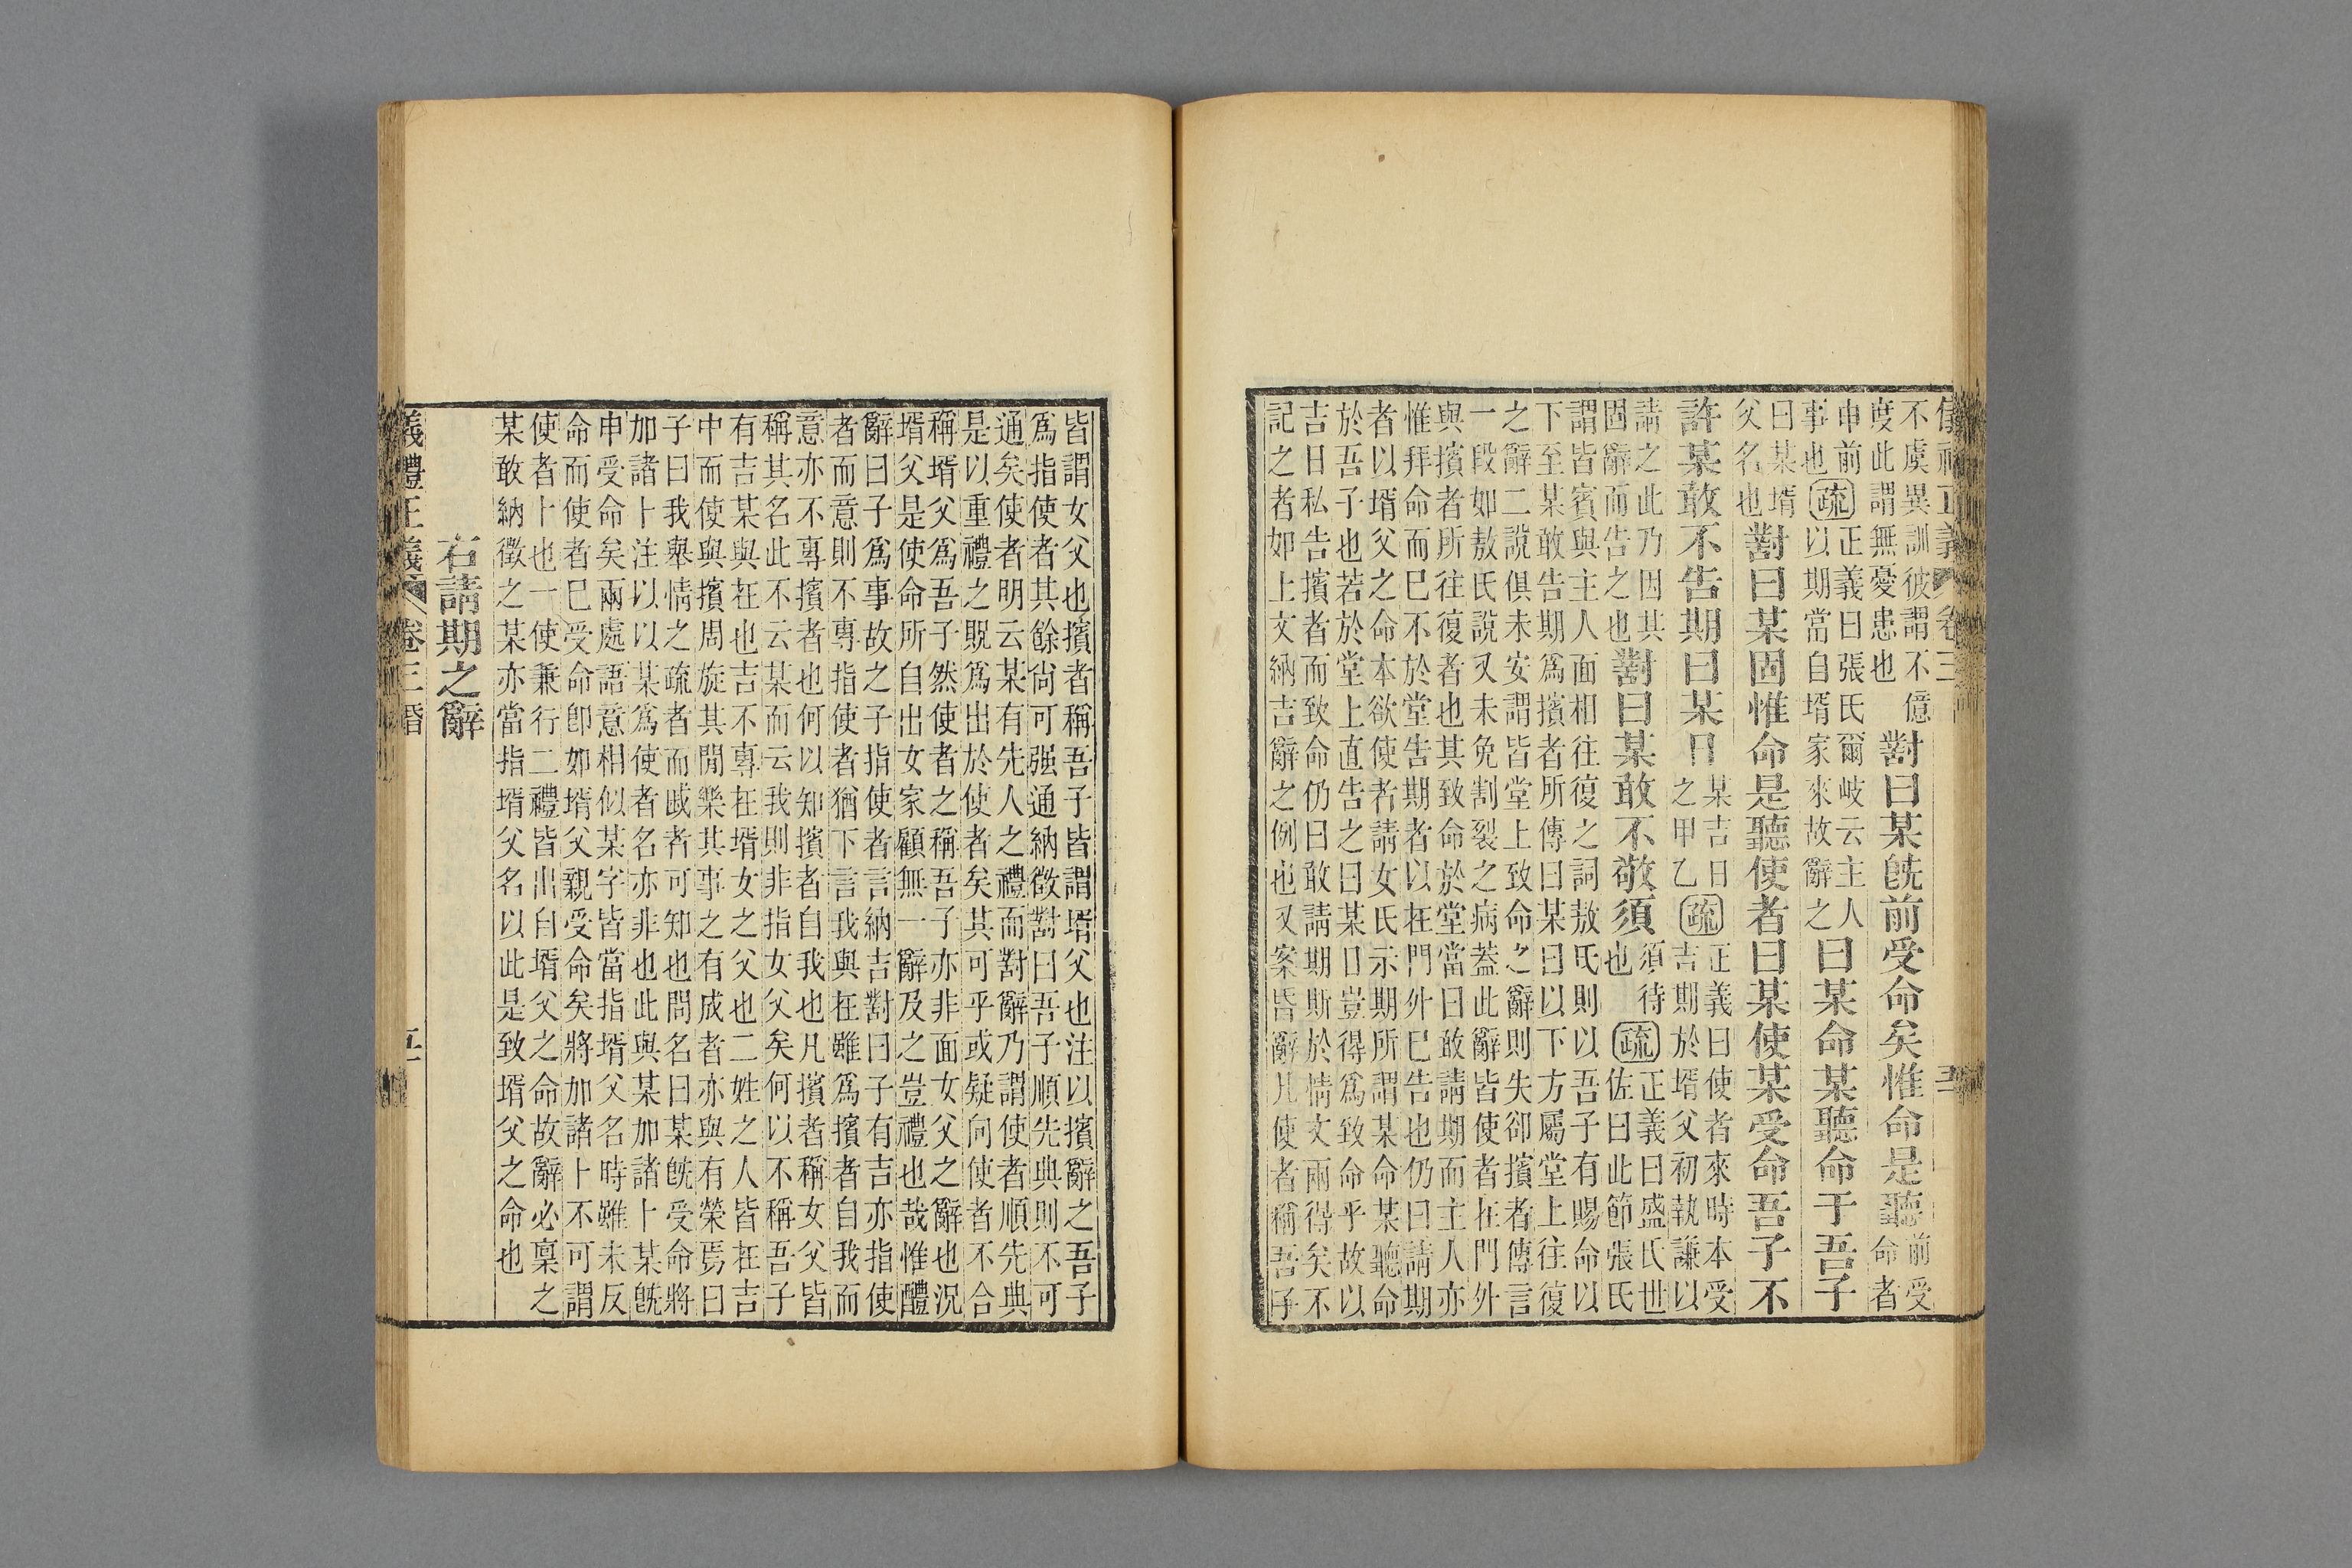 儀禮正義 卷三
不虞異訓彼謂不億
度此謂無憂患也
對曰某旣前受命矣惟命是聽
前受
命者
申前
事也
疏
正義曰張氏爾岐云主人
以期當自壻家來故辭之
曰某命某聽命于吾子
曰某壻
父名也
對曰某固惟命是聽使者曰某使某受命吾子不
許某敢不告期曰某日
某吉日
之甲乙
疏
正義曰使者來時本受
吉期於壻父初執謙以
請之此乃因其
固辭而告之也
對曰某敢不敬須
須待
也
疏
正義曰盛氏世
佐曰此節張氏
謂皆賓與主人面相往復之詞敖氏則以吾子有賜命以
下至某敢告期爲擯者所傳曰某曰以下方屬堂上往復
之辭二說俱未安謂皆堂上致命之辭則失卻擯者傳言
一段如敖氏說又未免割裂之病蓋此辭皆使者在門外
與擯者所往復者也其致命於堂當曰敢請期而主人亦
惟拜命而已不於堂告期者以在門外已告也仍曰請期
者以壻父之命本欲使者請女氏示期所謂某命某聽命
於吾子也若於堂上直告之曰某日豈得爲致命乎故以
吉日私告擯者而致命仍曰敢請期斯於情文兩得矣不
記之者如上文納吉辭之例也又案昏辭凡使者稱吾子
皆謂女父也擯者稱吾子皆謂壻父也注以擯辭之吾子
爲指使者其餘尙可强通納徵對曰吾子順先典則不可
通矣使者明云某有先人之禮而對辭乃謂使者順先典
是以重禮之貺爲出於使者矣其可乎或疑向使者不合
稱壻父爲吾子然使者之稱吾子亦非面女父之辭也況
壻父是使命所自出女家顧無一辭及之豈禮也哉惟醴
辭曰子爲事故之子指使者言納吉對曰子有吉亦指使
者而意則不專指使者猶下言我與在雖爲擯者自我而
意亦不專擯者也何以知擯者自我也凡擯者稱女父皆
稱其名此不云某而云我則非指女父矣何以不稱吾子
有吉某與在也吉不專在壻女之父也二姓之人皆在吉
中而使與擯周旋其閒樂其事之有成者亦與有榮焉曰
子曰我舉情之疏者而戚者可知也問名曰某旣受命將
加諸卜注以以某爲使者名亦非也此與某加諸卜某旣
申受命矣兩處語意相似某字皆當指壻父名時雖未反
命而使者已受命卽如壻父親受命矣將加諸卜不可謂
使者卜也一使兼行二禮皆出自壻父之命故辭必稟之
某敢納徵之某亦當指壻父名以此是致壻父之命也
右請期之辭
儀禮正義 卷三 婚